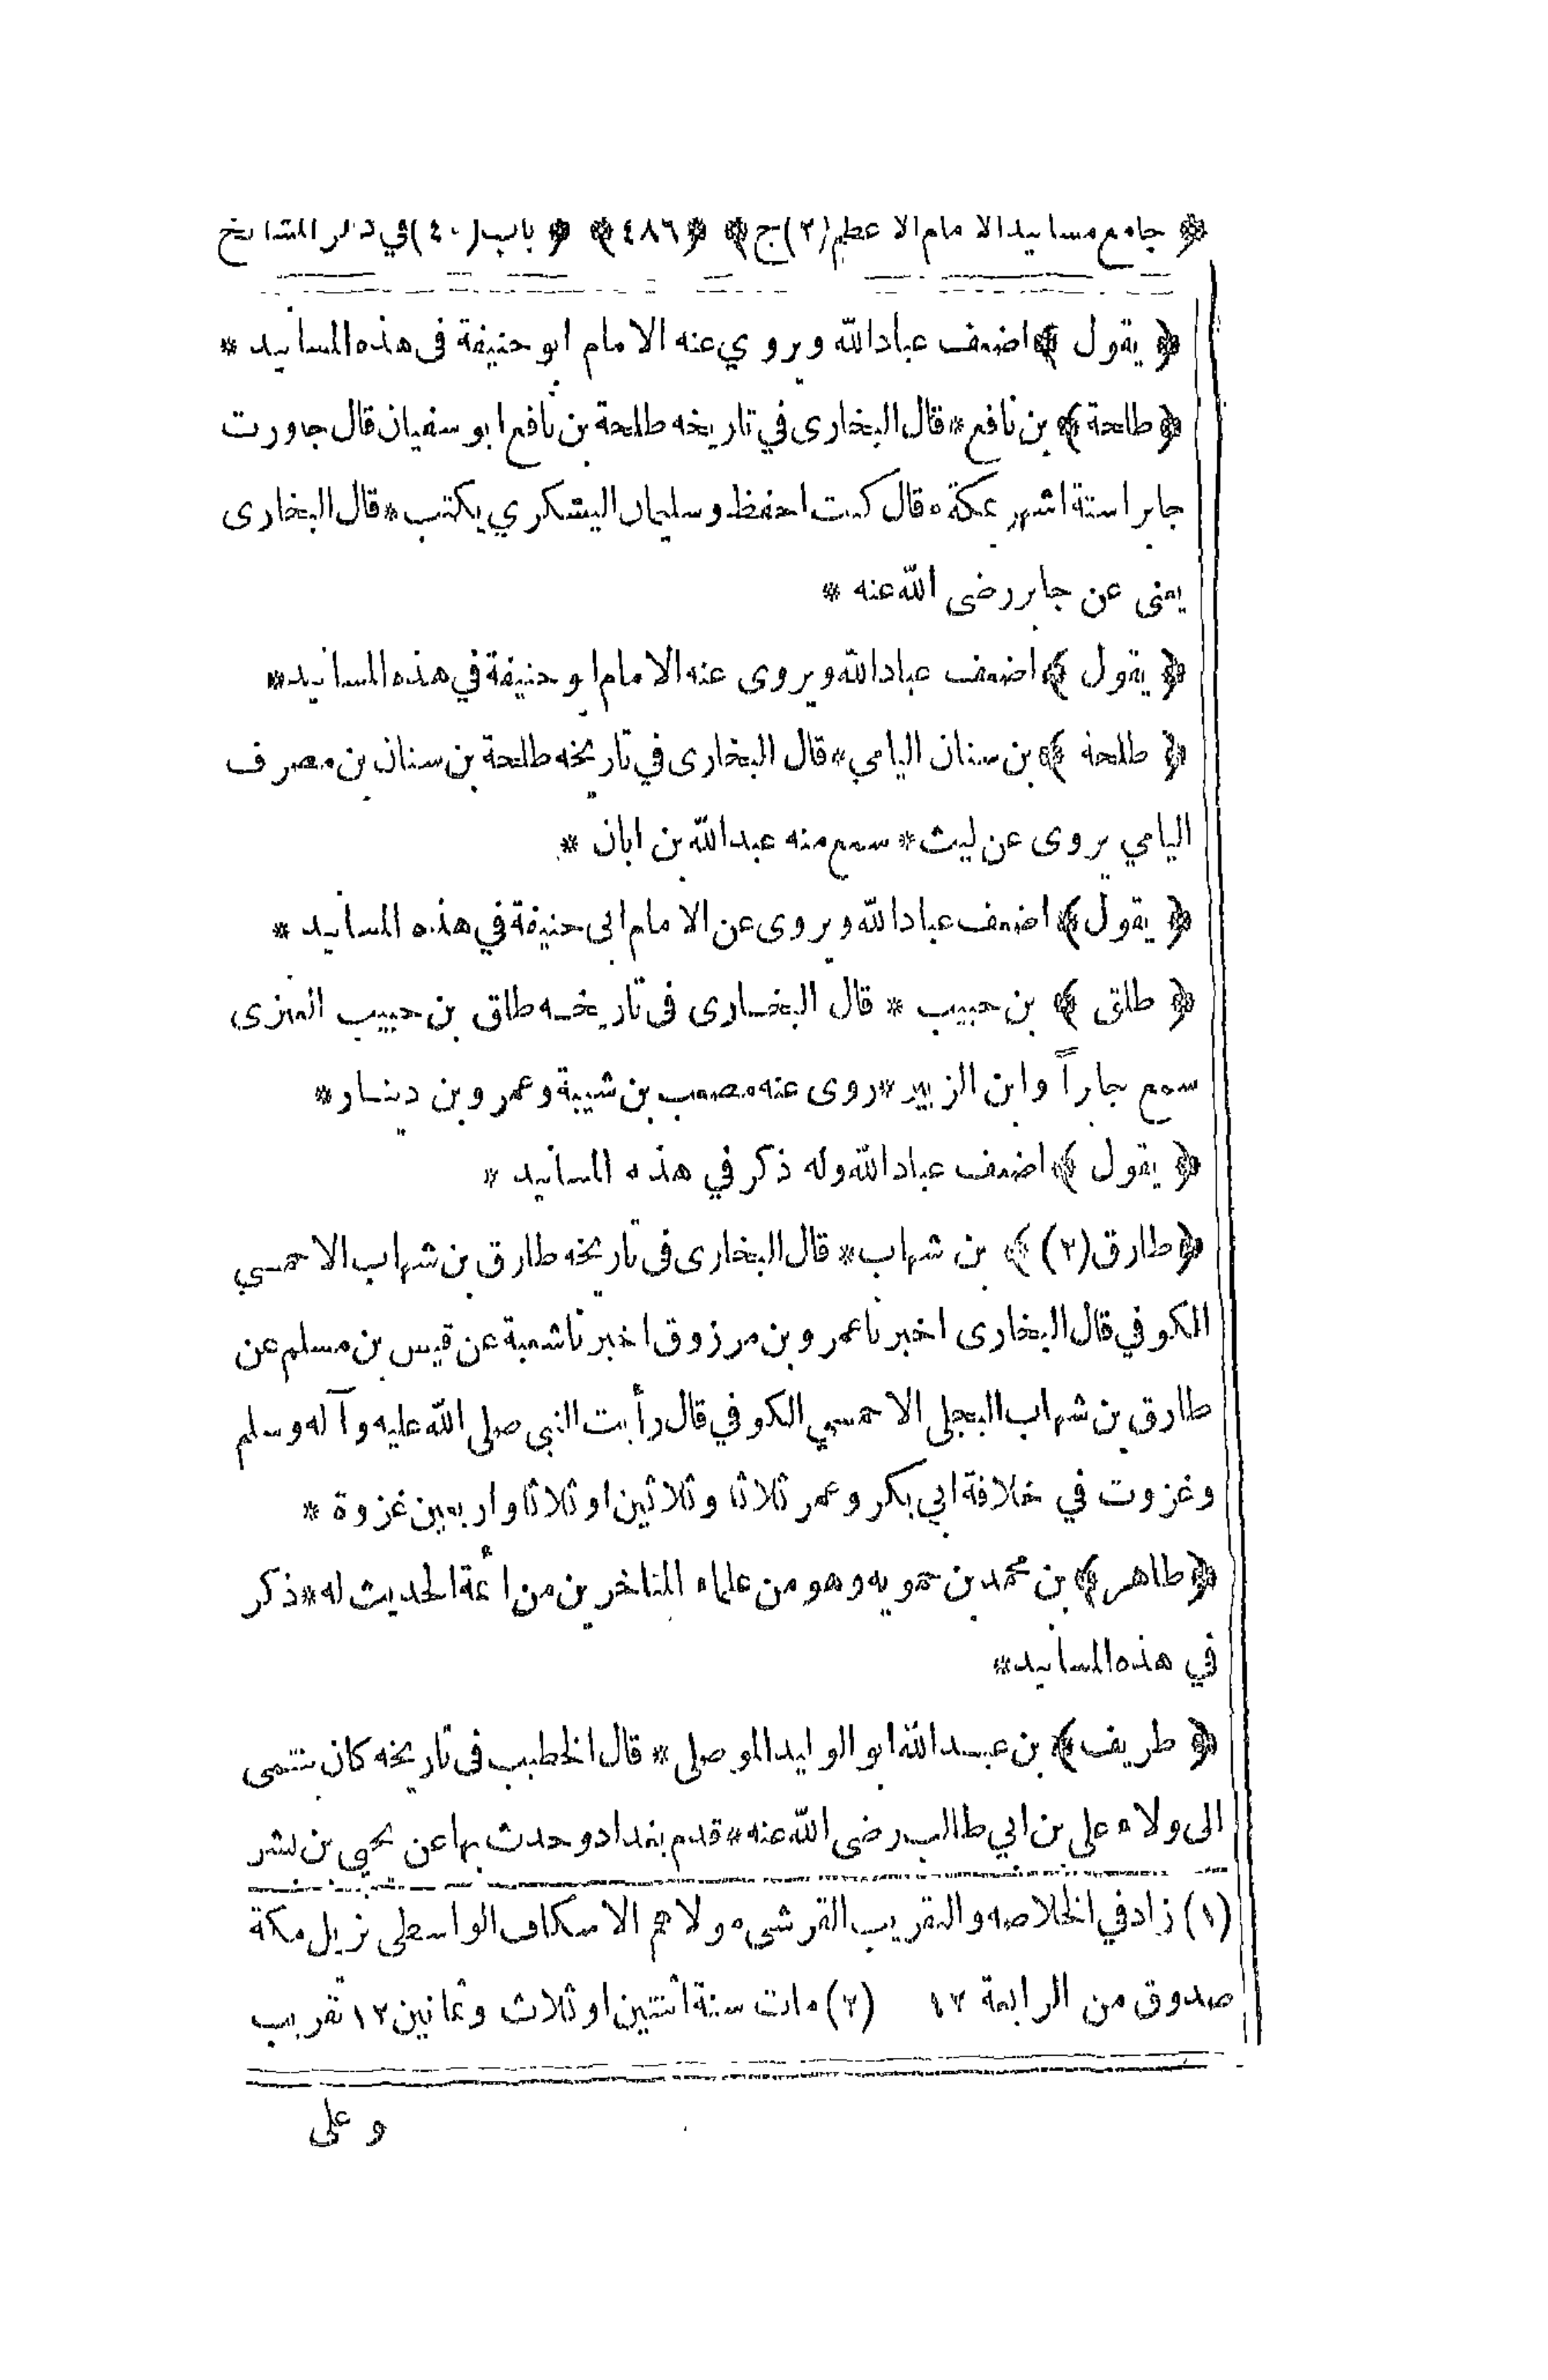 ﴿ جامع مسانيد الامام الاعظم (٢) ج ﴾ ﴿ ٤٨٦ ﴾ ﴿ باب (٤٠) في ذكر المشايخ
﴿ يقول ﴾ اضعف عباد الله ويروي عنه الامام ابو حنيفة فى هذه المسانيد *
﴿ طلحة ﴾ بن نافع * قال البخارى في تاريخه طلحة بن نافع ابو سفيان قال جاورت
جابرا ستة اشهر بمكة * قال كنت احفظ وسليمان اليشكري يكتب * قال البخارى
يعنى عن جابر رضى الله عنه *
﴿ يقول ﴾ اضعف عباد الله ويروى عنه الامام ابو حنيفة في هذه المسانيد *
﴿ طلحة ﴾ بن سنان اليامي * قال البخارى في تاريخه طلحة بن سنان بن مصرف
اليامي يروى عن ليث * سمع منه عبد الله بن ابان *
﴿ يقول ﴾ اضعف عباد الله ويروى عن الامام ابى حنيفة في هذه المسانيد *
﴿ طلق ﴾ بن حبيب * قال البخارى فى تاريخه طلق بن حبيب العنزى
سمع جابراً وابن الزبير * روى عنه مصعب بن شيبة وعمرو بن دينار *
﴿ يقول ﴾ اضعف عباد الله وله ذكر في هذه المسانيد *
﴿ طارق (٢) ﴾ بن شهاب * قال البخارى فى تاريخه طارق بن شهاب الاحمسي
الكوفي قال البخارى اخبرنا عمرو بن مرزوق اخبرنا شعبة عن قيس بن مسلم عن
طارق بن شهاب البجلى الاحمسي الكوفي قال رأيت النبى صلى الله عليه وآله وسلم
وغزوت في خلافة ابي بكر وعمر ثلاثا وثلاثين او ثلاثا واربعين غزوة *
﴿ طاهر ﴾ بن محمد بن حمويه وهو من علماء المتاخرين من أئمة الحديث له * ذكر
في هذه المسانيد *
﴿ طريف ﴾ بن عبد الله ابو الوليد الموصلى * قال الخطيب فى تاريخه كان ينتمى
الى ولاء على بن ابي طالب رضى الله عنه * قدم بغداد وحدث بها عن يحيى بن بشر
(١) زاد في الخلاصه والتقريب القرشى مولاهم الاسكاف الواسطى نزيل مكة
صدوق من الرابعة ١٢ (٢) مات سنة اثنتين او ثلاث وثمانين ١٢ تقريب
وعلى